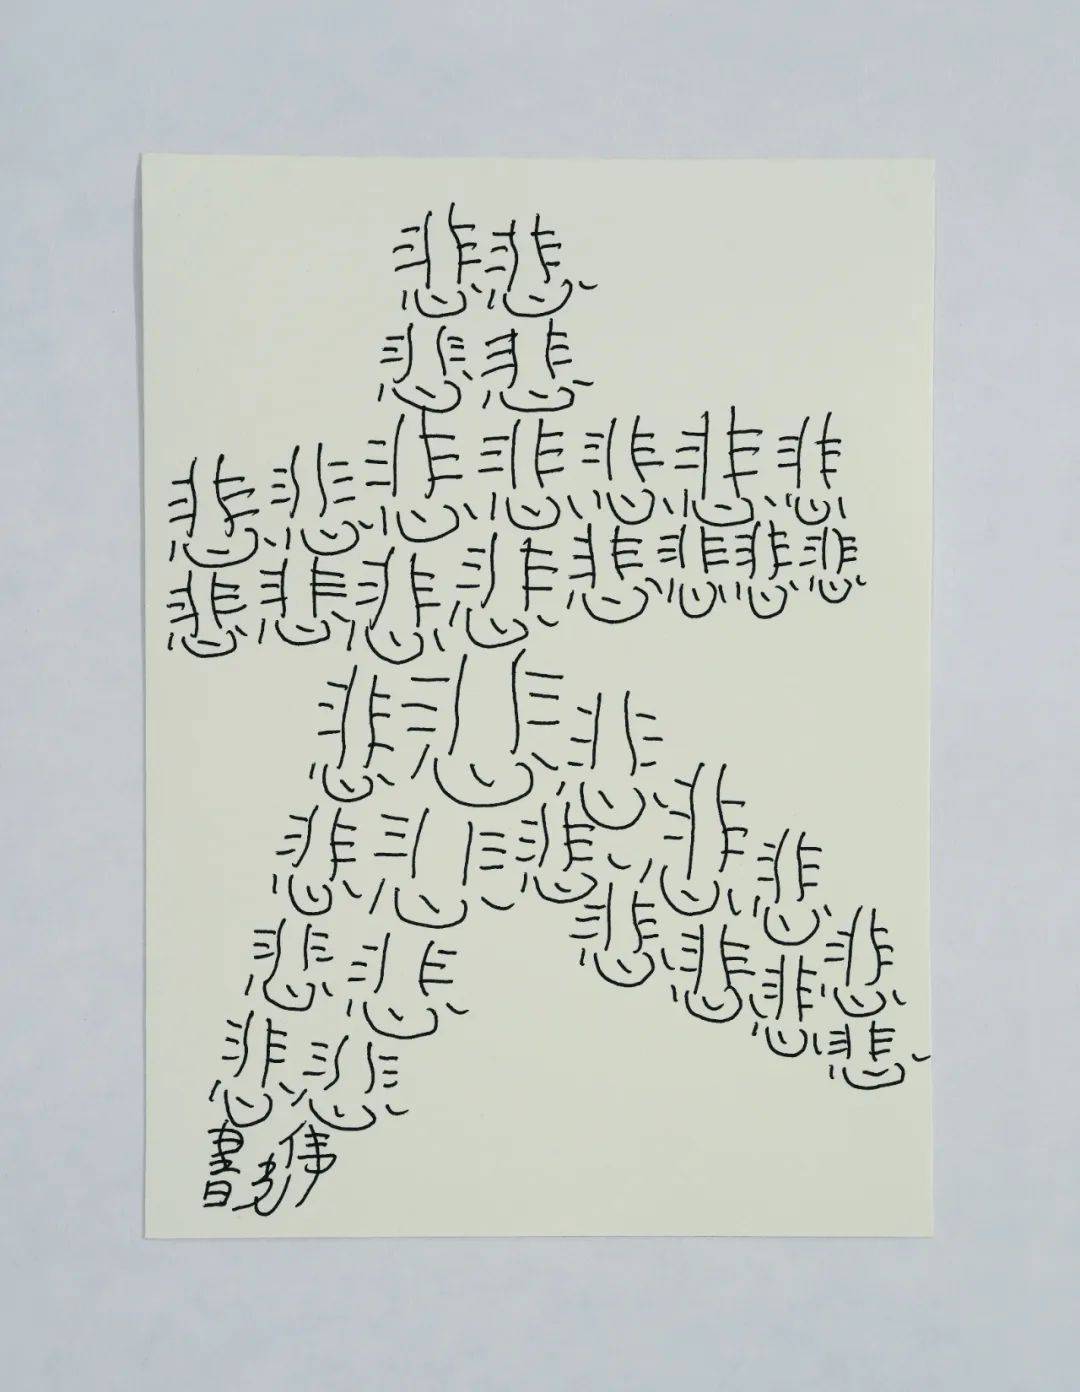 悲悲
悲悲
悲悲悲悲悲悲悲
悲悲悲悲悲悲悲悲
悲悲悲
悲悲悲悲悲
悲悲悲悲悲悲
悲悲悲
書 伟